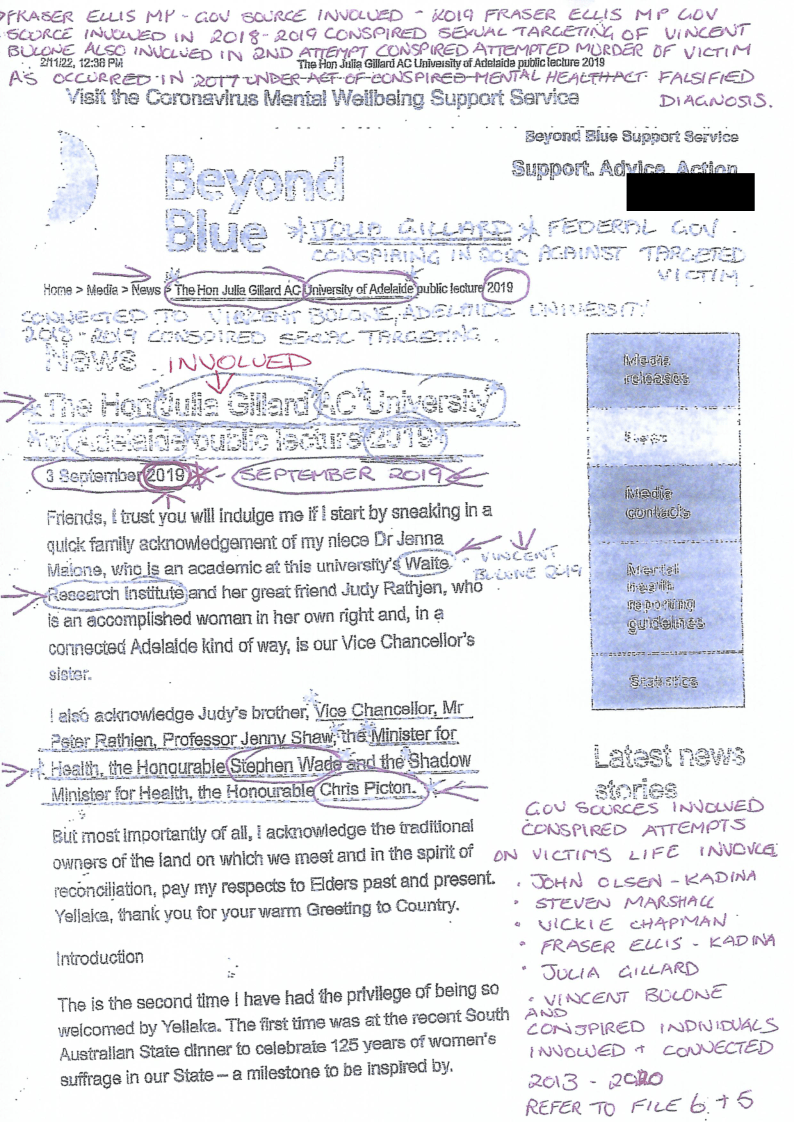 FRASER ELLIS MP - GOV SOURCE INVOLVED - 2019 FRASER ELLIS MP GOV
SOURCE INVOLVED IN 2018-2019 CONSPIRED SEXUAL TARGETING OF VINCENT
BULONE ALSO INVOLVED IN 2ND ATTEMPT CONSPIRED ATTEMPTED MURDER OF VICTIM
2/11/22, 12:38 PM The Hon Julia Gillard AC University of Adelaide public lecture 2019
AS OCCURRED IN 2017 UNDER ACT OF CONSPIRED MENTAL HEALTH ACT FALSIFIED
DIAGNOSIS.
Visit the Coronavirus Mental Wellbeing Support Service
Beyond Blue Support Service
Support. Advice. Action
Beyond
Blue
JULIA GILLARD FEDERAL GOV.
CONSPIRING IN AGAINST TARGETED
VICTIM.
Home > Media > News > The Hon Julia Gillard AC University of Adelaide public lecture 2019
CONNECTED TO VINCENT BULONE, ADELAIDE UNIVERSITY
2018-2019 CONSPIRED SEXUAL TARGETING.
News
INVOLVED
The Hon Julia Gillard AC University
of Adelaide public lecture 2019
3 September 2019 - SEPTEMBER 2019
Friends, I trust you will indulge me if I start by sneaking in a
quick family acknowledgement of my niece Dr Jenna
Malone, who is an academic at this university's Waite
VINCENT
BULONE 2019
Research Institute and her great friend Judy Rathjen, who
is an accomplished woman in her own right and, in a
connected Adelaide kind of way, is our Vice Chancellor's
sister.
I also acknowledge Judy's brother, Vice Chancellor, Mr
Peter Rathjen, Professor Jenny Shaw, the Minister for
Health, the Honourable Stephen Wade and the Shadow
Minister for Health, the Honourable Chris Picton.
But most importantly of all, I acknowledge the traditional
owners of the land on which we meet and in the spirit of
reconciliation, pay my respects to Elders past and present.
Yellaka, thank you for your warm Greeting to Country.
Introduction
The is the second time I have had the privilege of being so
welcomed by Yellaka. The first time was at the recent South
Australian State dinner to celebrate 125 years of women's
suffrage in our State – a milestone to be inspired by.
Media
releases
News
Media
contacts
Mental
health
reporting
guidelines
Statistics
Latest news
stories
GOV SOURCES INVOLVED
CONSPIRED ATTEMPTS
ON VICTIMS LIFE INVOLVE
• JOHN OLSEN - KADINA
• STEVEN MARSHALL
• VICKIE CHAPMAN
• FRASER ELLIS - KADINA
• JULIA GILLARD
• VINCENT BULONE
AND
CONSPIRED INDIVIDUALS
INVOLVED + CONNECTED
2013 - 2020
REFER TO FILE 6 + 5